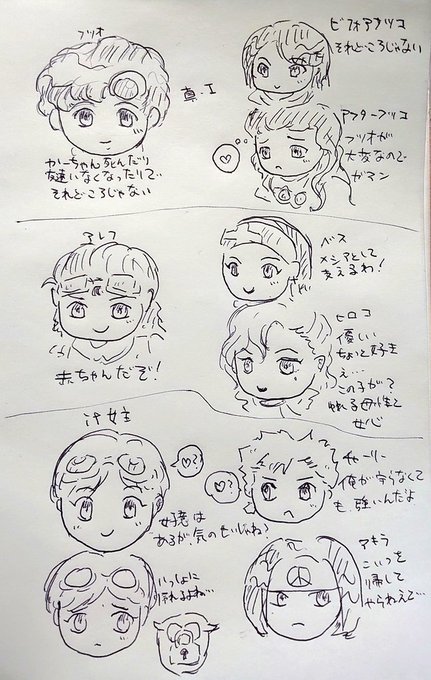 フツオ
かーちゃん死んだり
友達いなくなったりで
それどころじゃない
真・Ⅰ
ビフォアフツコ
それどころじゃない
アフターフツコ
フツオが
大変なので
ガマン
アレフ
赤ちゃんだぞ!
ベス
メシアとして
支えるわ!
ヒロコ
優しい
ちょっと好き
え…
この子が?
ゆれる母性と
女心
汁女主
好意は
あるが、気のせいじゃね?
チャーリー
俺が守らなくて
も、強いんだよ
いっしょに
アキラ
こいつを
帰して
やらねえで…